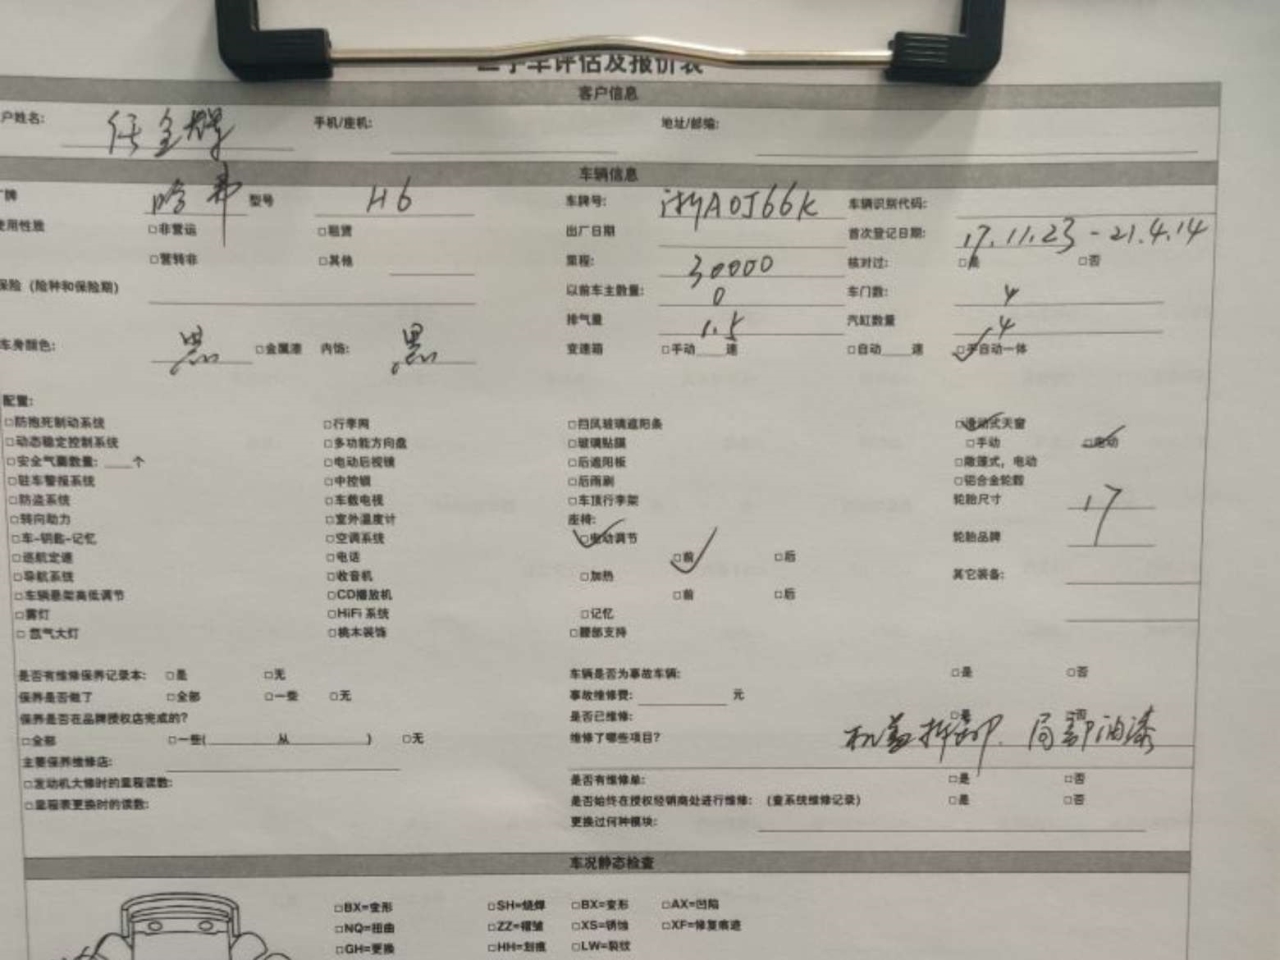 二手车评估及报价表
客户信息
户姓名: 任金辉 手机/座机: 地址/邮编:
车辆信息
牌 哈弗 型号 H6 车牌号: 浙A0J66K 车辆识别代码:
使用性质 □非营运 □租赁 出厂日期 首次登记日期: 17.11.23 - 21.4.14
□营转非 □其他 里程: 30000 核对过: □是 □否
保险（险种和保险期） 以前车主数量: 0 车门数: 4
排气量 1.5 汽缸数量 4
车身颜色: 黑 □金属漆 内饰: 黑 变速箱 □手动 速 □自动 速 □手自动一体
配置:
□防抱死制动系统 □行李网 □挡风玻璃遮阳条 □滑动式天窗
□动态稳定控制系统 □多功能方向盘 □玻璃贴膜 □手动 □电动
□安全气囊数量: 个 □电动后视镜 □后遮阳板 □敞篷式，电动
□驻车警报系统 □中控锁 □后雨刷 □铝合金轮毂
□防盗系统 □车载电视 □车顶行李架 轮胎尺寸 17
□转向助力 □室外温度计 座椅:
□车-钥匙-记忆 □空调系统 □电动调节 轮胎品牌
□巡航定速 □电话 □前 □后
□导航系统 □收音机 □加热 其它装备:
□车辆悬架高低调节 □CD播放机 □前 □后
□雾灯 □HiFi 系统 □记忆
□ 氙气大灯 □桃木装饰 □腰部支持
是否有维修保养记录本: □是 □无 车辆是否为事故车辆: □是 □否
保养是否做了 □全部 □一些 □无 事故维修费: 元
保养是否在品牌授权店完成的？ 是否已维修: □是 □否
□全部 □一些( 从 ) □无 维修了哪些项目？ 机盖拆卸. 局部油漆
主要保养维修店:
□发动机大修时的里程读数: 是否有维修单: □是 □否
□里程表更换时的读数: 是否始终在授权经销商处进行维修: （查系统维修记录） □是 □否
更换过何种模块:
车况静态检查
□BX=变形 □SH=烧焊 □BX=变形 □AX=凹陷
□NQ=扭曲 □ZZ=褶皱 □XS=锈蚀 □XF=修复痕迹
□GH=更换 □HH=划痕 □LW=裂纹